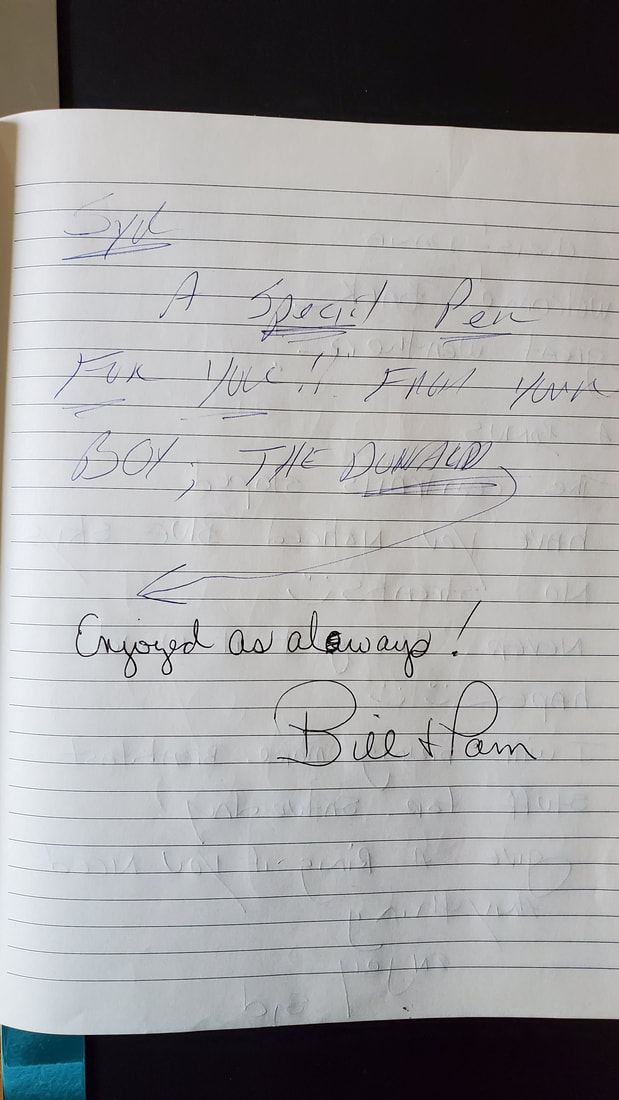 Syd
A Special Pen
FOR YOU!! FROM YOUR
BOY, THE DONALD
Enjoyed as always!
Bill & Pam